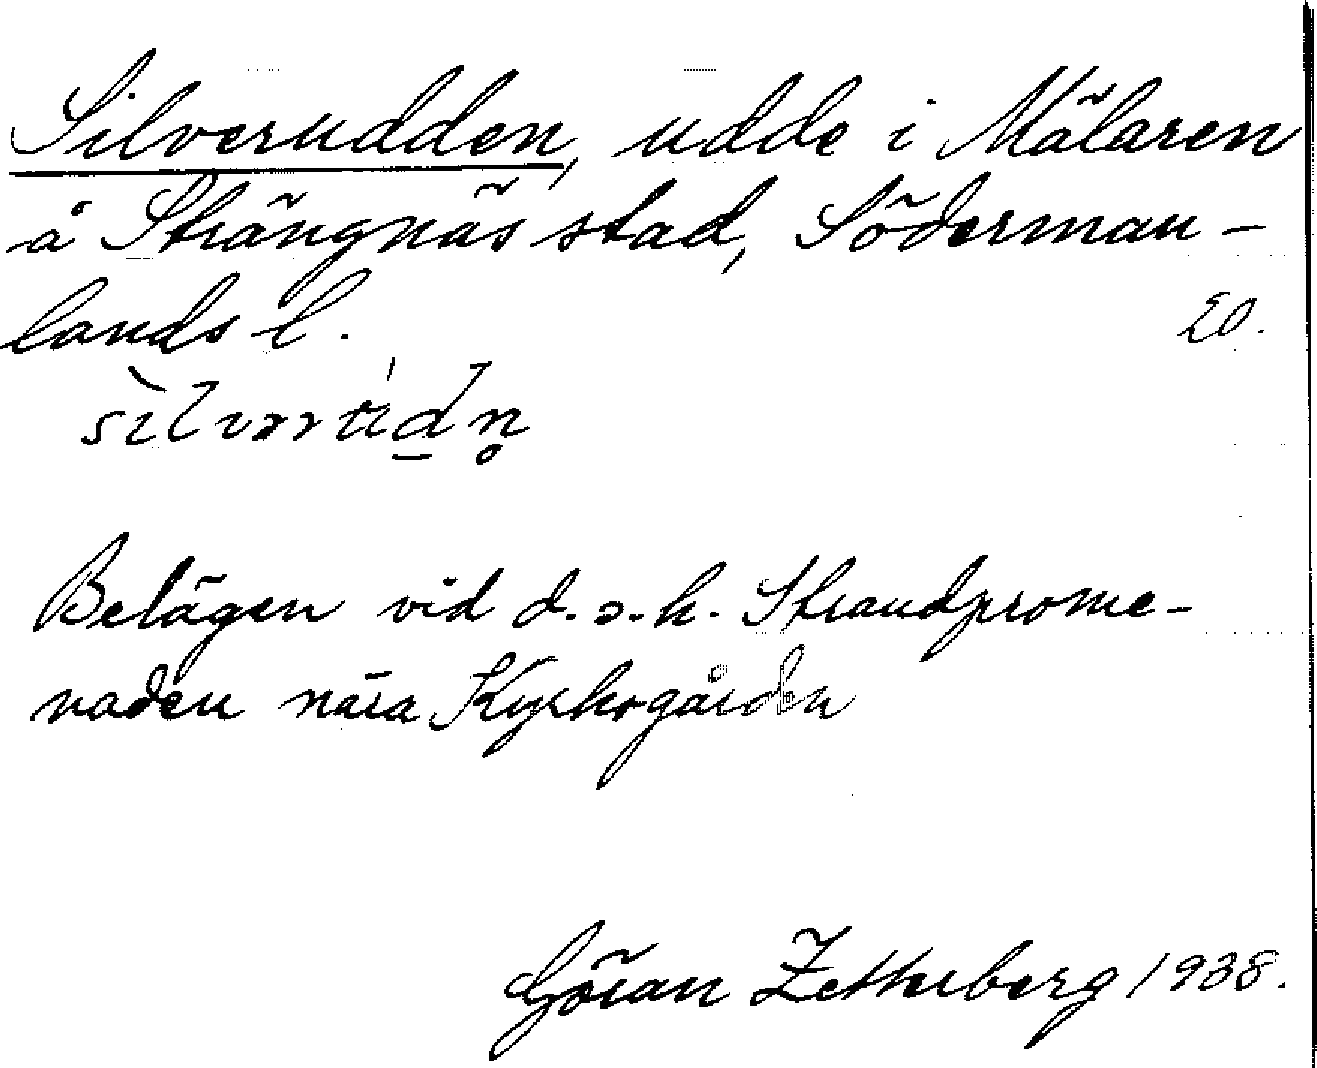 Silverudden, udde i Mälaren
å Strängnäs stad, Söderman-
lands l.
20.
Belägen vid d.s.k. Strandprome-
naden nära Kyrkogården
Göran Zetterberg 1938.